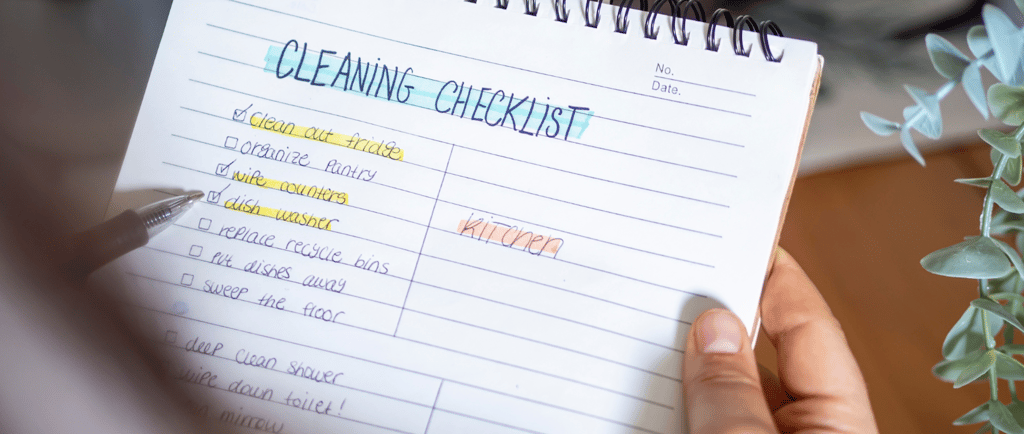 No.
Date.
CLEANING CHECKLIST
clean out fridge
organize pantry
wipe counters
dish washer
replace recycle bins
put dishes away
sweep the floor
kitchen
deep clean shower
wipe down toilet!
mirrow